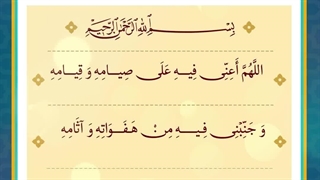 بِسْمِ اللهِ الرَّحْمنِ الرَّحِيمِ
اللَّهُمَّ أَعِنِّي فِيهِ عَلَى صِيَامِهِ وَ قِيَامِهِ
وَ جَنِّبْنِي فِيهِ مِنْ هَفَوَاتِهِ وَ آثَامِهِ